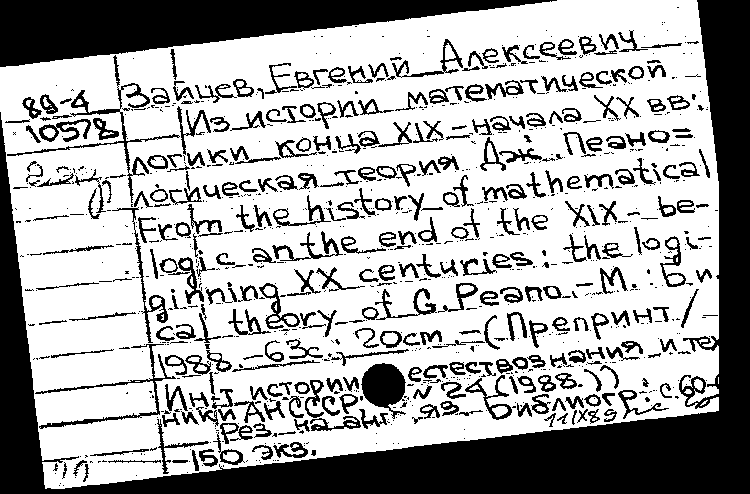 Зайцев, Евгений Алексеевич
89-4
10578
Из истории математической
логики конца XIX – начала XX вв.:
логическая теория Дж. Пеано =
From the history of mathematical
logic an the end of the XIX – be-
ginning XX centuries: the logi-
cal theory of G. Peano. – М.: Б.и.
1988. – 63с.; 20см. – (Препринт /
Ин-т истории естествознания и тех
ники АН СССР, N 24 (1988.))
Рез. на англ. яз. Библиогр.: с. 60-
11IX89
– 150 экз.